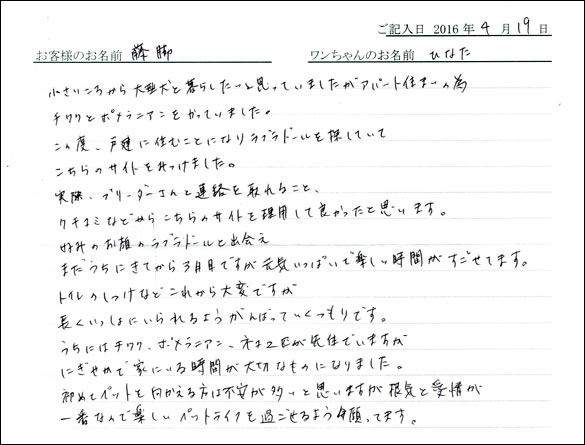 ご記入日 2016年4月19日
お客様のお名前 藤脚 ワンちゃんのお名前 ひなた
小さいころから大型犬と暮らしたいと思っていましたがアパート住まいの為
チワワとポメラニアンをかっていました。
この度、戸建に住むことになりラブラドールを探していて
こちらのサイトをみつけました。
実際、ブリーダーさんと連絡を取れること、
クチコミなどからこちらのサイトを理用して良かったと思います。
好みのお雄のラブラドールと出会え
まだうちにきてから3月目ですが元気いっぱいで楽しい時間がすごせてます。
トイレのしつけなどこれから大変ですが
長くいっしょにいられるようがんばっていくつもりです。
うちにはチワワ、ポメラニアン、ネコ2匹が先住でいますが
にぎやかで家にいる時間が大切なものになりました。
初めてペットを向かえる方は不安が多いと思いますが根気と愛情が
一番なんで楽しいペットライフを過ごせるよう願ってます。